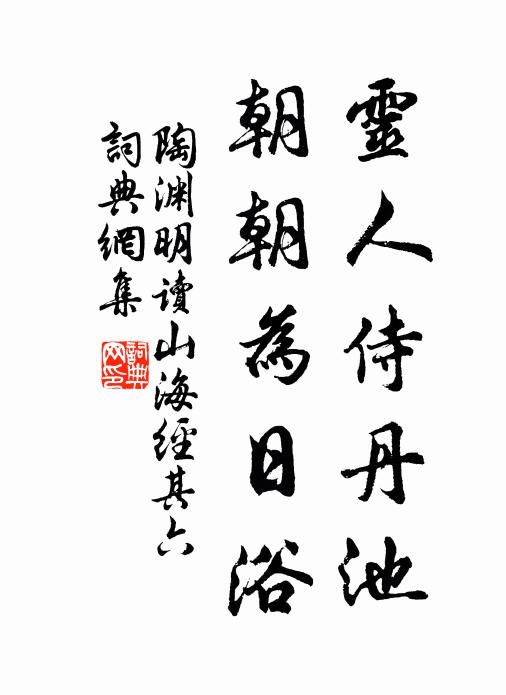 靈人侍丹池
朝朝為日浴
陶渊明讀山海經其六
詞典網集
詞典
网印